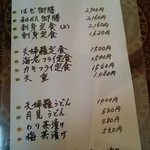 はも御膳 2,700円
和み御膳 2,160円
刺身定食(上) 2,160円
刺身定食 1,620円
天婦羅定食 1,500円
海老フライ定食 1,500円
カキフライ定食 1,560円
天重 1,080円
天婦羅うどん
月見うどん
のり茶漬け
梅茶漬け